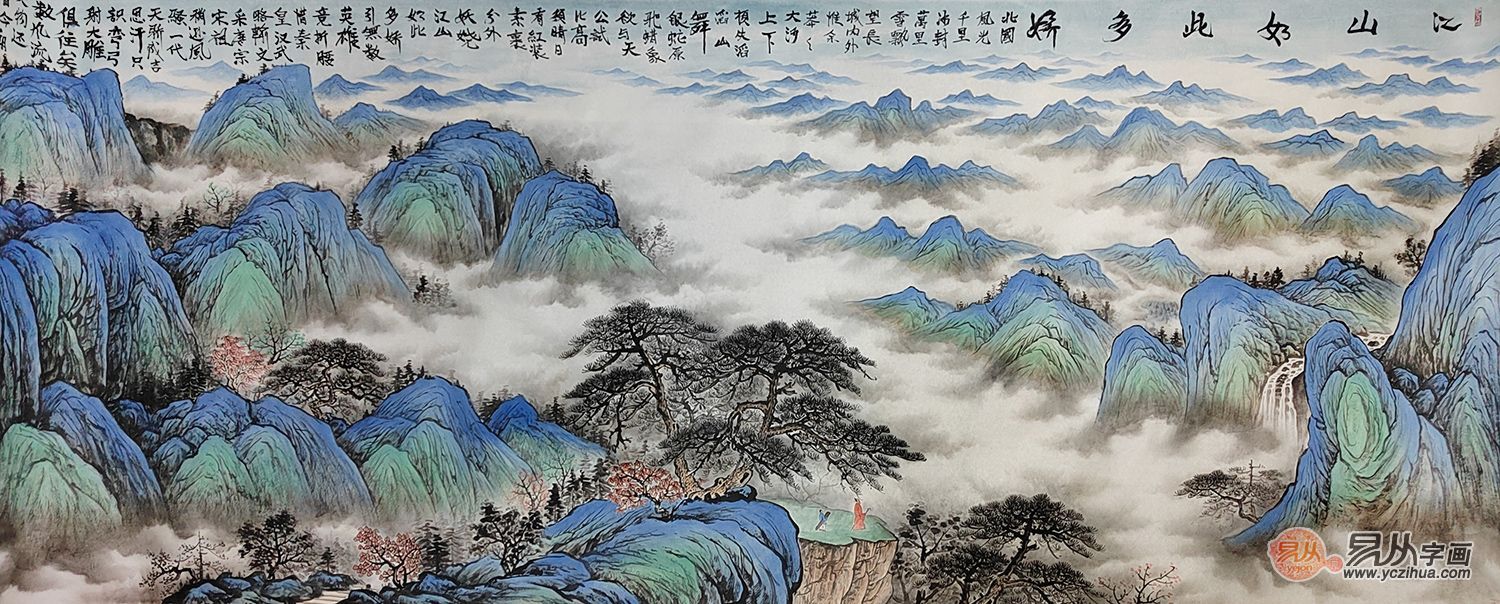 江山如此多娇
北國
風光
千里
冰封
萬里
雪飘
望長
城内外
惟余
莽々
大河
上下
頓失滔
滔山
舞
銀蛇原
驰蜡象
欲与天
公試
比高
須晴日
看红装
素裹
分外
妖娆
江山
如此
多娇
引無数
英雄
竞折腰
惜秦
皇汉武
略输文
采唐宗
宋祖
稍逊風
骚一代
天骄成吉
思汗只
識弯弓
射大雕
俱往矣
数風流
易从
yicon
易从字画
www.yczihua.com